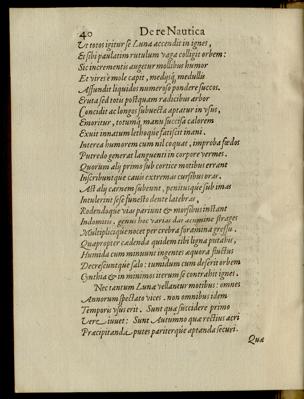 40 De re Nautica
Vt totos igitur se Luna accendit in ignes,
Et sibi paulatim rutulum vaga colligit orbem:
Sic incrementis augetur mollibus humor
Et vires e mole capit, medijsq; medullis
Affundit liquidos numeroso pondere succos.
Eruta sed totus postquam radicibus arbor
Concidit ac longos subuecta aptatur in vsus,
Emoritur, totumq; manu succisa calorem
Exuit innatum lethoque fatiscit inani.
Interea humorem cum nil coquat, improba fœdos
Putredo generat languenti in corpore vermes.
Quorum alij primo sub cortice motibus errant
Inscribuntque cauis extremas cursibus oras.
Ast alij carnem subeunt, penitusque sub imas
Intulerint sese funesto dente latebras,
Rodendoque vias pariunt & morsibus instant
Indomitis. genus hoc varias dat acumine strages
Multipliciq; nocet per crebra foramina gressu.
Quapropter cædenda quidem tibi ligna putabis,
Humida cum minuunt ingentes æquora fluctus
Decrescuntque salo: tumidum cum deserit orbem
Cynthia & in minimos iterum se contrahit ignes.
Nec tantum Lunæ vellantur motibus: omnes
Annorum spectato vices. non omnibus idem
Temporis vsus erit. Sunt quæ succidere primo
Vere iuuet: Sunt Autumno quæ rectius acri
Præcipitanda putes pariterque aptanda securi.
Quæ